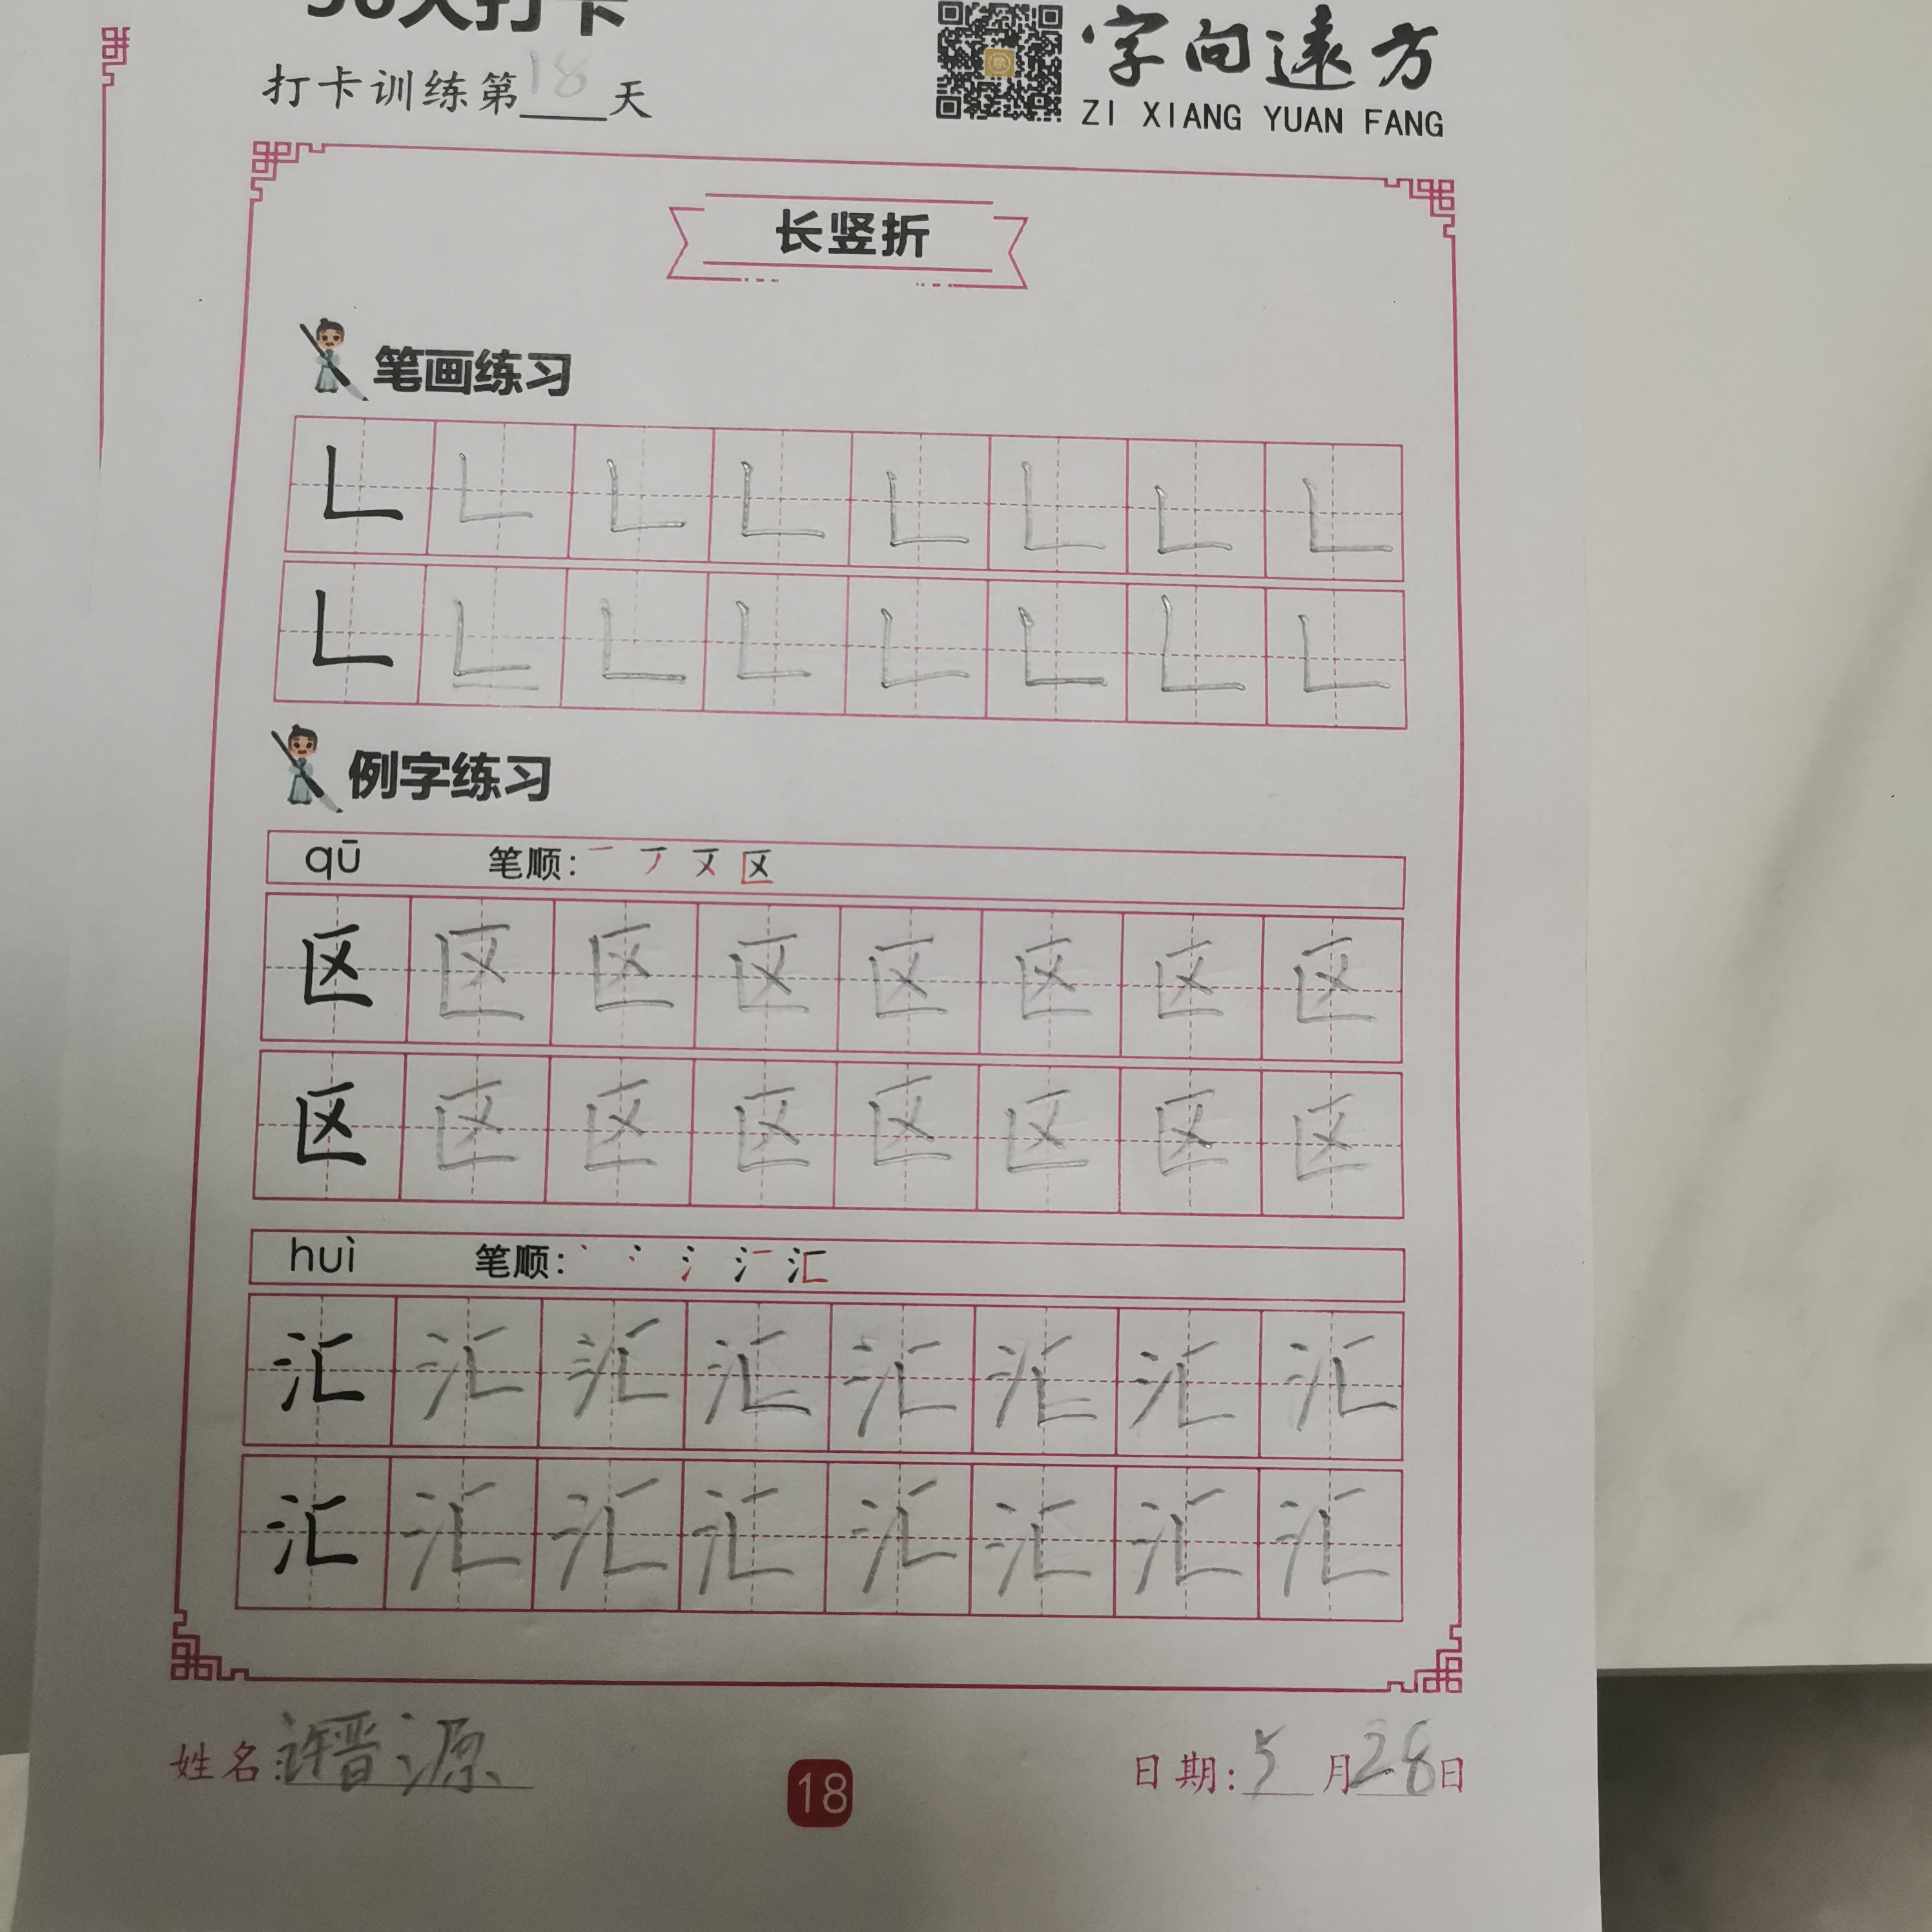 打卡训练第18天
字向遠方
ZI XIANG YUAN FANG
长竖折
笔画练习
例字练习
qū 笔顺:
区 区 区 区 区 区 区 区
区 区 区 区 区 区 区 区
huì 笔顺:
汇 汇 汇 汇 汇 汇 汇 汇
汇 汇 汇 汇 汇 汇 汇 汇
姓名:许晋源
18
日期:5月28日